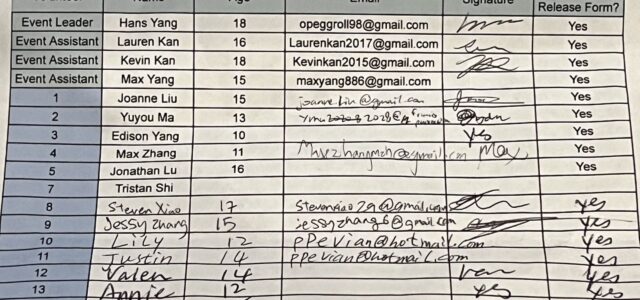 Name Age Email Signature Release Form?
Event Leader Hans Yang 18 opeggroll98@gmail.com Yes
Event Assistant Lauren Kan 16 Laurenkan2017@gmail.com Yes
Event Assistant Kevin Kan 18 Kevinkan2015@gmail.com Yes
Event Assistant Max Yang 15 maxyang886@gmail.com Yes
1 Joanne Liu 15 joanneliu@gmail.com Yes
2 Yuyou Ma 13 Yes
3 Edison Yang 10 yes Yes
4 Max Zhang 11 Max Yes
5 Jonathan Lu 16 Yes
7 Tristan Shi
8 Steven Xiao 17 Stevenxiao29@gmail.com yes
9 Jessy Zhang 15 jessyzhang6@gmail.com yes
10 Lily 12 ppevian@hotmail.com yes
11 Justin 14 ppevian@hotmail.com yes
12 Valen 14 van yes
13 Annie 12 yes yes